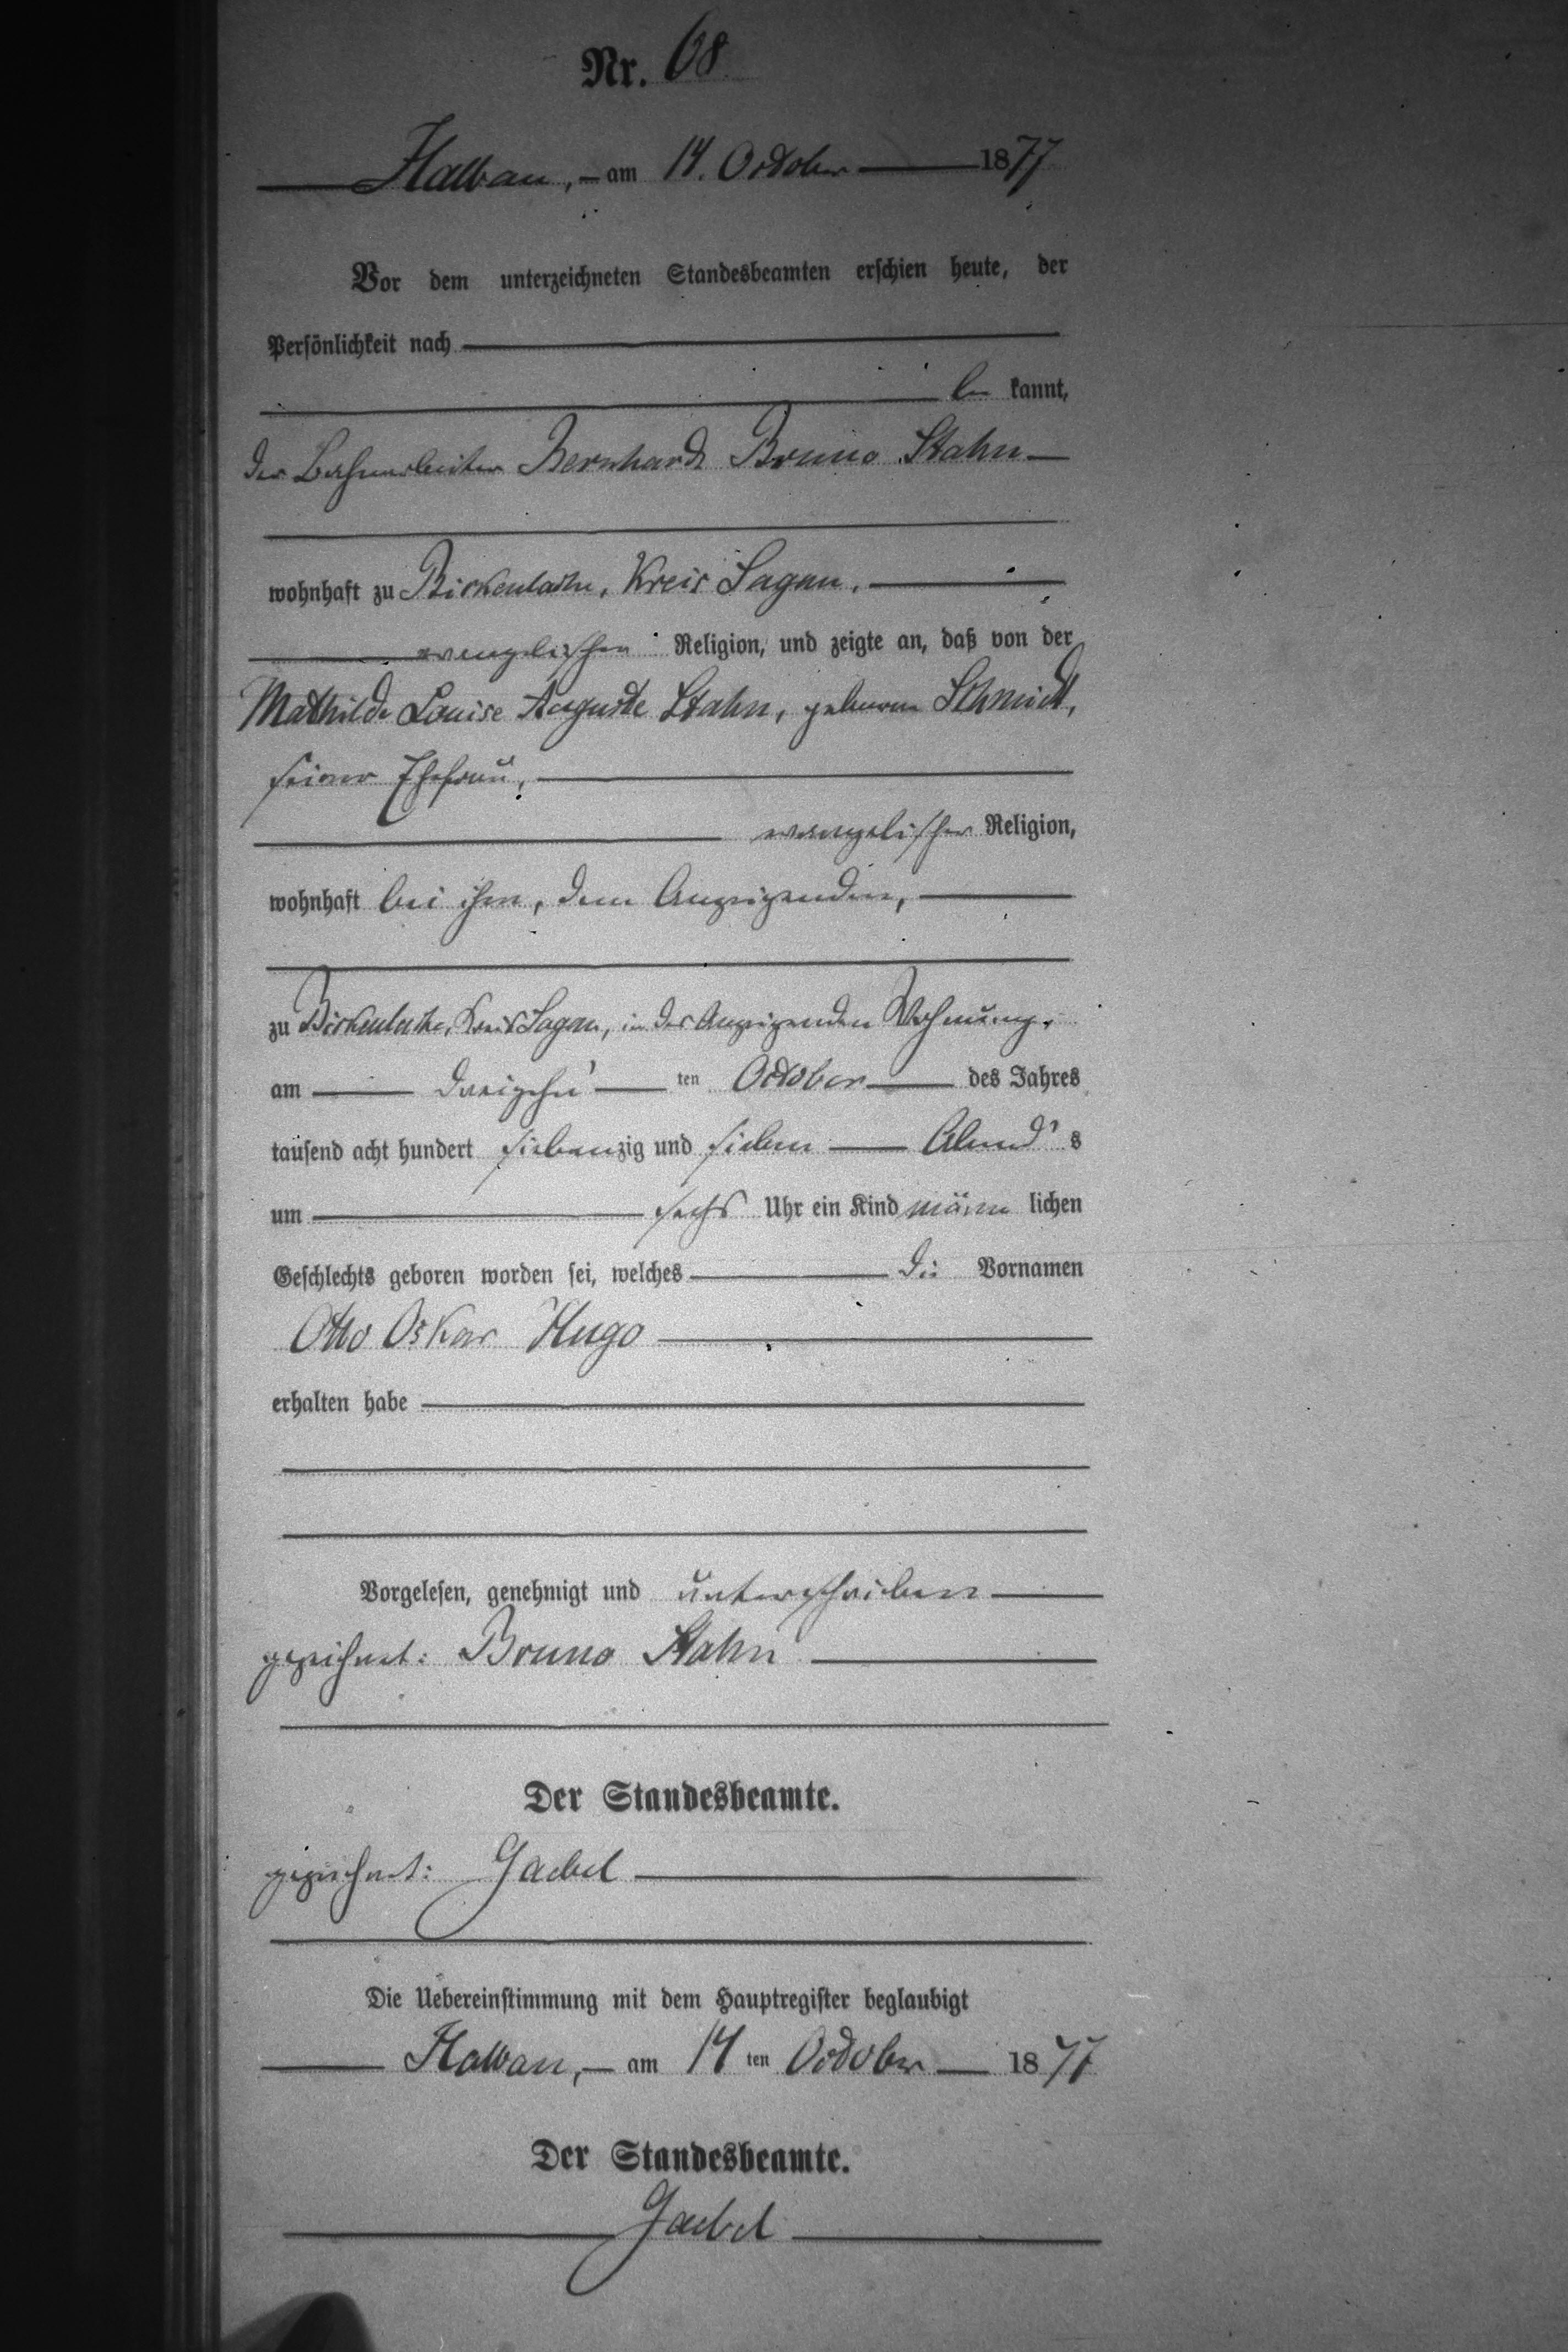 Nr. 68.
Halbau, am 14. October 1877
Vor dem unterzeichneten Standesbeamten erschien heute, der
Persönlichkeit nach
be kannt,
der Bahnarbeiter Bernhard Bruno Stahn
wohnhaft zu Birkenlache, Kreis Sagan,
evangelischer Religion, und zeigte an, daß von der
Mathilde Louise Auguste Stahn, geborne Schmidt,
seiner Ehefrau,
evangelischer Religion,
wohnhaft bei ihm, dem Anzeigenden,
zu Birkenlache, Kreis Sagan, in des Anzeigenden Wohnung,
am dreizehn ten October des Jahres
tausend acht hundert siebenzig und sieben Abend s
um sechs Uhr ein Kind männ lichen
Geschlechts geboren worden sei, welches die Vornamen
Otto Oskar Hugo
erhalten habe
Vorgelesen, genehmigt und unterschrieben
gezeichnet: Bruno Stahn
Der Standesbeamte.
gezeichnet: Gaebel
Die Uebereinstimmung mit dem Hauptregister beglaubigt
Halbau, am 14 ten October 1877
Der Standesbeamte.
Gaebel